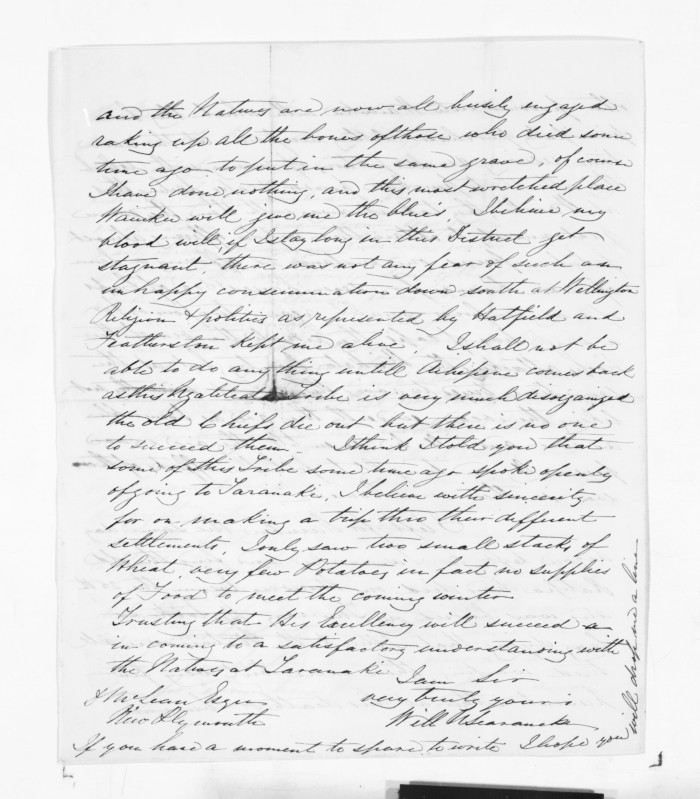 and the Natives are now all busily engaged
raking up all the bones of those who died some
time ago to put in the same grave, of course
I have done nothing, and this most wretched place
will give me the blues. I believe my
blood will, if I stay long in this District get
stagnant, there was not any fear of such an
unhappy consummation down south at Wellington
Religion & politics as represented by Hatfield and
Featherston kept me alive. I shall not be
able to do any thing untill comes back
as this Tribe is very much disorganized
the old Chiefs die out but there is no one
to succeed them. I think I told you that
some of this Tribe some time ago spoke openly
of going to Taranaki, I believe with sincerity
for on making a trip thro their different
settlements, I only saw two small stacks of
Wheat, very few Potatoes, in fact no supplies
of Food to meet the coming winter
Trusting that His Excellency will succeed
in coming to a satisfactory understanding with
the Natives at Taranaki
I am Sir
very truly yours
Will
McLean Esqre
New Plymouth
If you have a moment to spare to write I hope you
will drop me a line